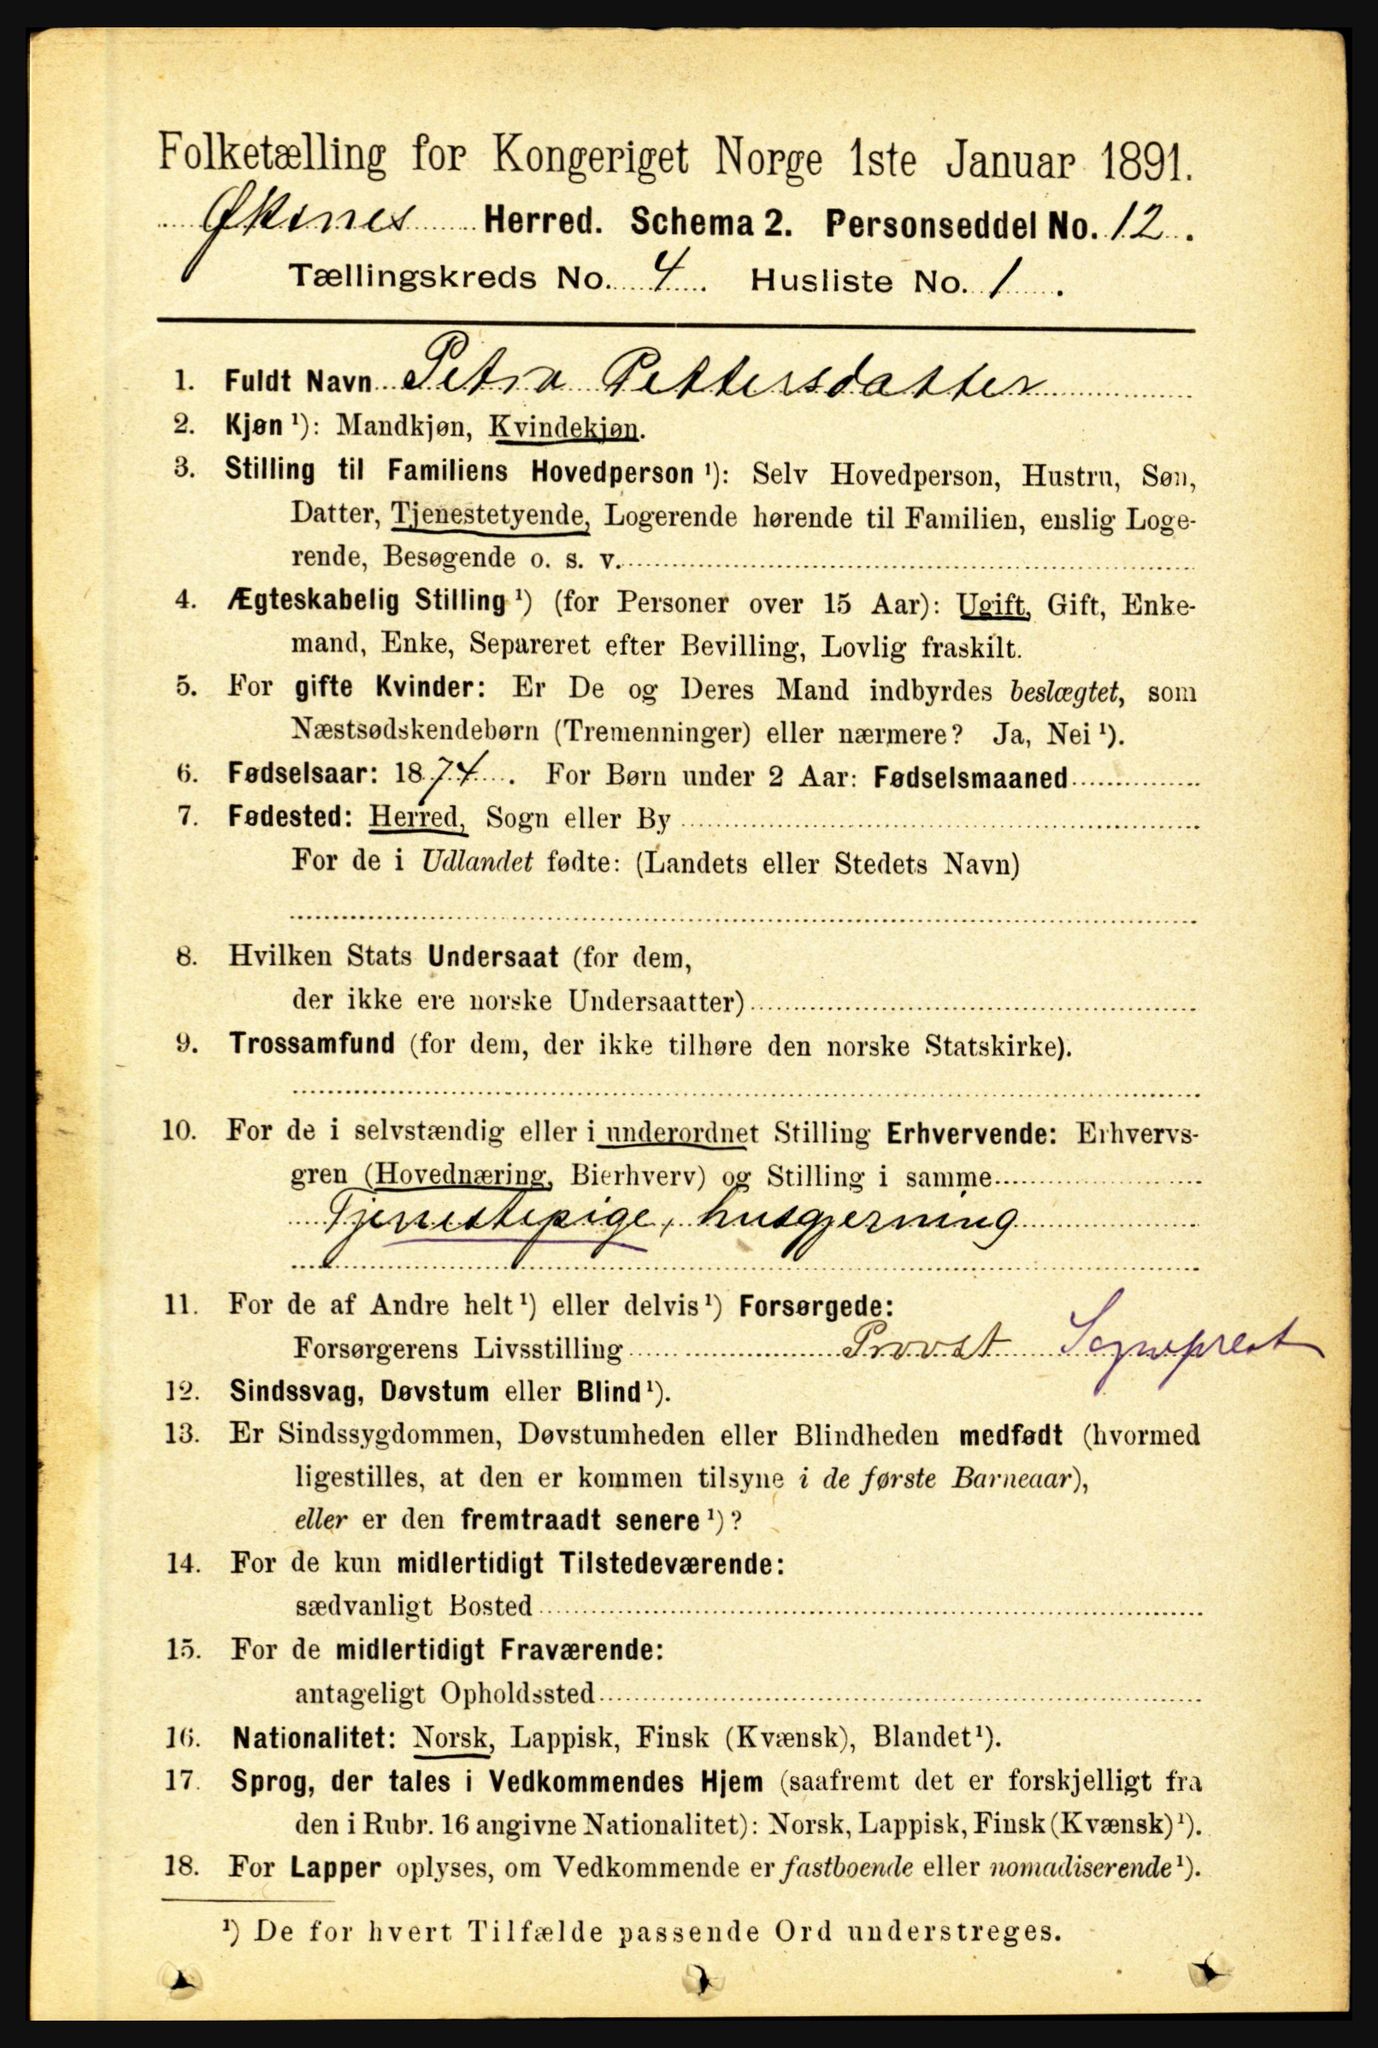 Folketælling for Kongeriget Norge 1ste Januar 1891.
Øksnes Herred. Schema 2. Personseddel No. 12.
Tællingskreds No. 4. Husliste No. 1.
1. Fuldt Navn Petra Pettersdatter
2. Kjøn ¹): Mandkjøn, Kvindekjøn.
3. Stilling til Familiens Hovedperson ¹): Selv Hovedperson, Hustru, Søn,
Datter, Tjenestetyende, Logerende hørende til Familien, enslig Loge-
rende, Besøgende o. s. v.
4. Ægteskabelig Stilling ¹) (for Personer over 15 Aar): Ugift, Gift, Enke-
mand, Enke, Separeret efter Bevilling, Lovlig fraskilt.
5. For gifte Kvinder: Er De og Deres Mand indbyrdes beslægtet, som
Næstsødskendebørn (Tremenninger) eller nærmere? Ja, Nei ¹).
6. Fødselsaar: 1874. For Børn under 2 Aar: Fødselsmaaned
7. Fødested: Herred, Sogn eller By
For de i Udlandet fødte: (Landets eller Stedets Navn)
8. Hvilken Stats Undersaat (for dem,
der ikke ere norske Undersaatter)
9. Trossamfund (for dem, der ikke tilhøre den norske Statskirke).
10. For de i selvstændig eller i underordnet Stilling Erhvervende: Erhvervs-
gren (Hovednæring, Bierhverv) og Stilling i samme
Tjenestepige, husgjerning
11. For de af Andre helt ¹) eller delvis ¹) Forsørgede:
Forsørgerens Livsstilling Provst Sogneprest
12. Sindssvag, Døvstum eller Blind ¹).
13. Er Sindssygdommen, Døvstumheden eller Blindheden medfødt (hvormed
ligestilles, at den er kommen tilsyne i de første Barneaar),
eller er den fremtraadt senere ¹)?
14. For de kun midlertidigt Tilstedeværende:
sædvanligt Bosted
15. For de midlertidigt Fraværende:
antageligt Opholdssted
16. Nationalitet: Norsk, Lappisk, Finsk (Kvænsk), Blandet ¹).
17. Sprog, der tales i Vedkommendes Hjem (saafremt det er forskjelligt fra
den i Rubr. 16 angivne Nationalitet): Norsk, Lappisk, Finsk (Kvænsk) ¹).
18. For Lapper oplyses, om Vedkommende er fastboende eller nomadiserende ¹).
¹) De for hvert Tilfælde passende Ord understreges.